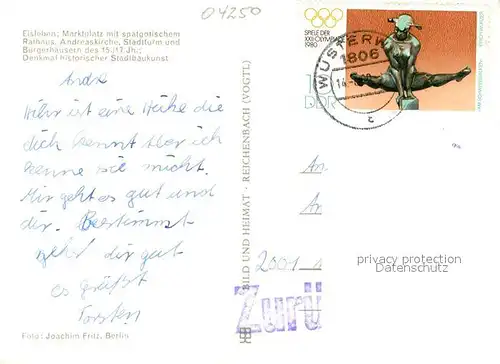 04250
Eisleben; Marktplatz mit spätgotischem
Rathaus, Andreaskirche, Stadtturm und
Bürgerhäusern des 15./17. Jh.;
Denkmal historischer Stadtbaukunst
André
Hier ist eine Heike die
dich kennt aber ich
kenne sie nicht.
Mir geht es gut und
dir. Bestimmt
geht dir gut
es grüßt
Torsten
Foto: Joachim Fritz, Berlin
BILD UND HEIMAT · REICHENBACH (VOGTL)
SPIELE DER
XXII. OLYMPIADE
1980
DDR
WUSTERW
1806
c
An
Ar
2001
Zurü
privacy protection
Datenschutz